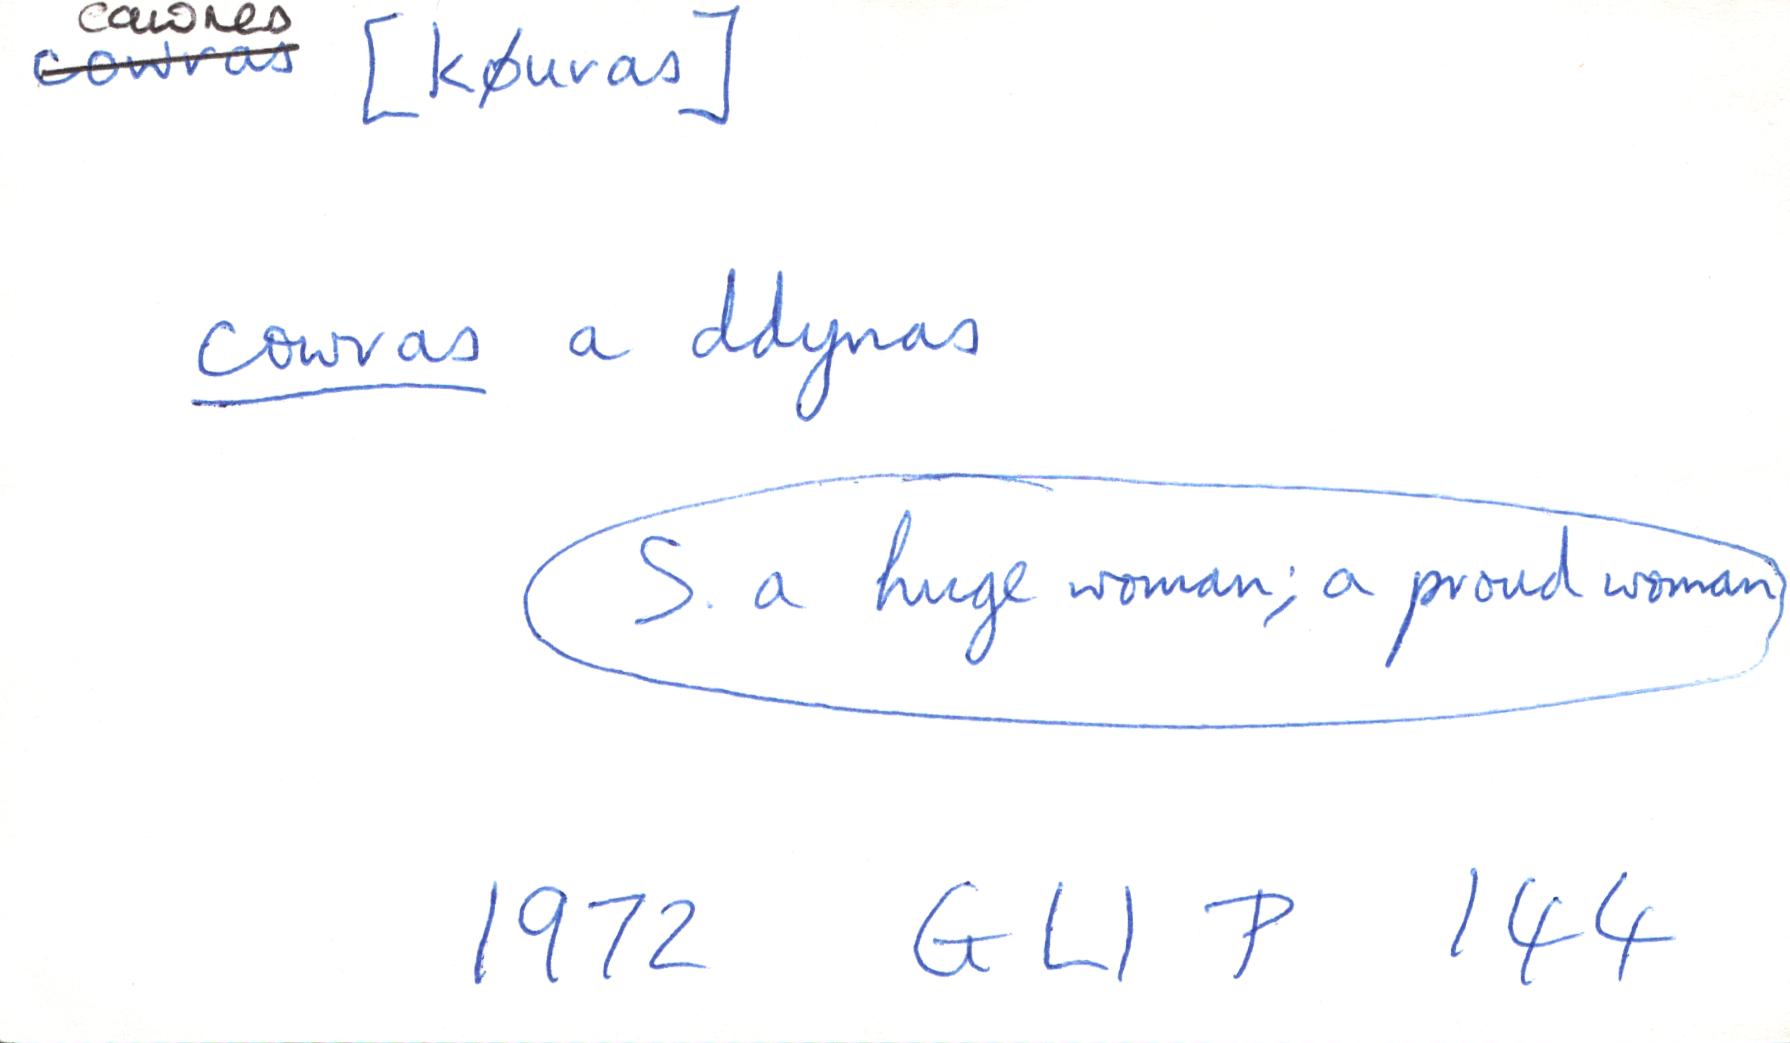 cawres
cowras [køuras]
cowras a ddynas
S. a huge woman; a proud woman
1972 GLl P 144